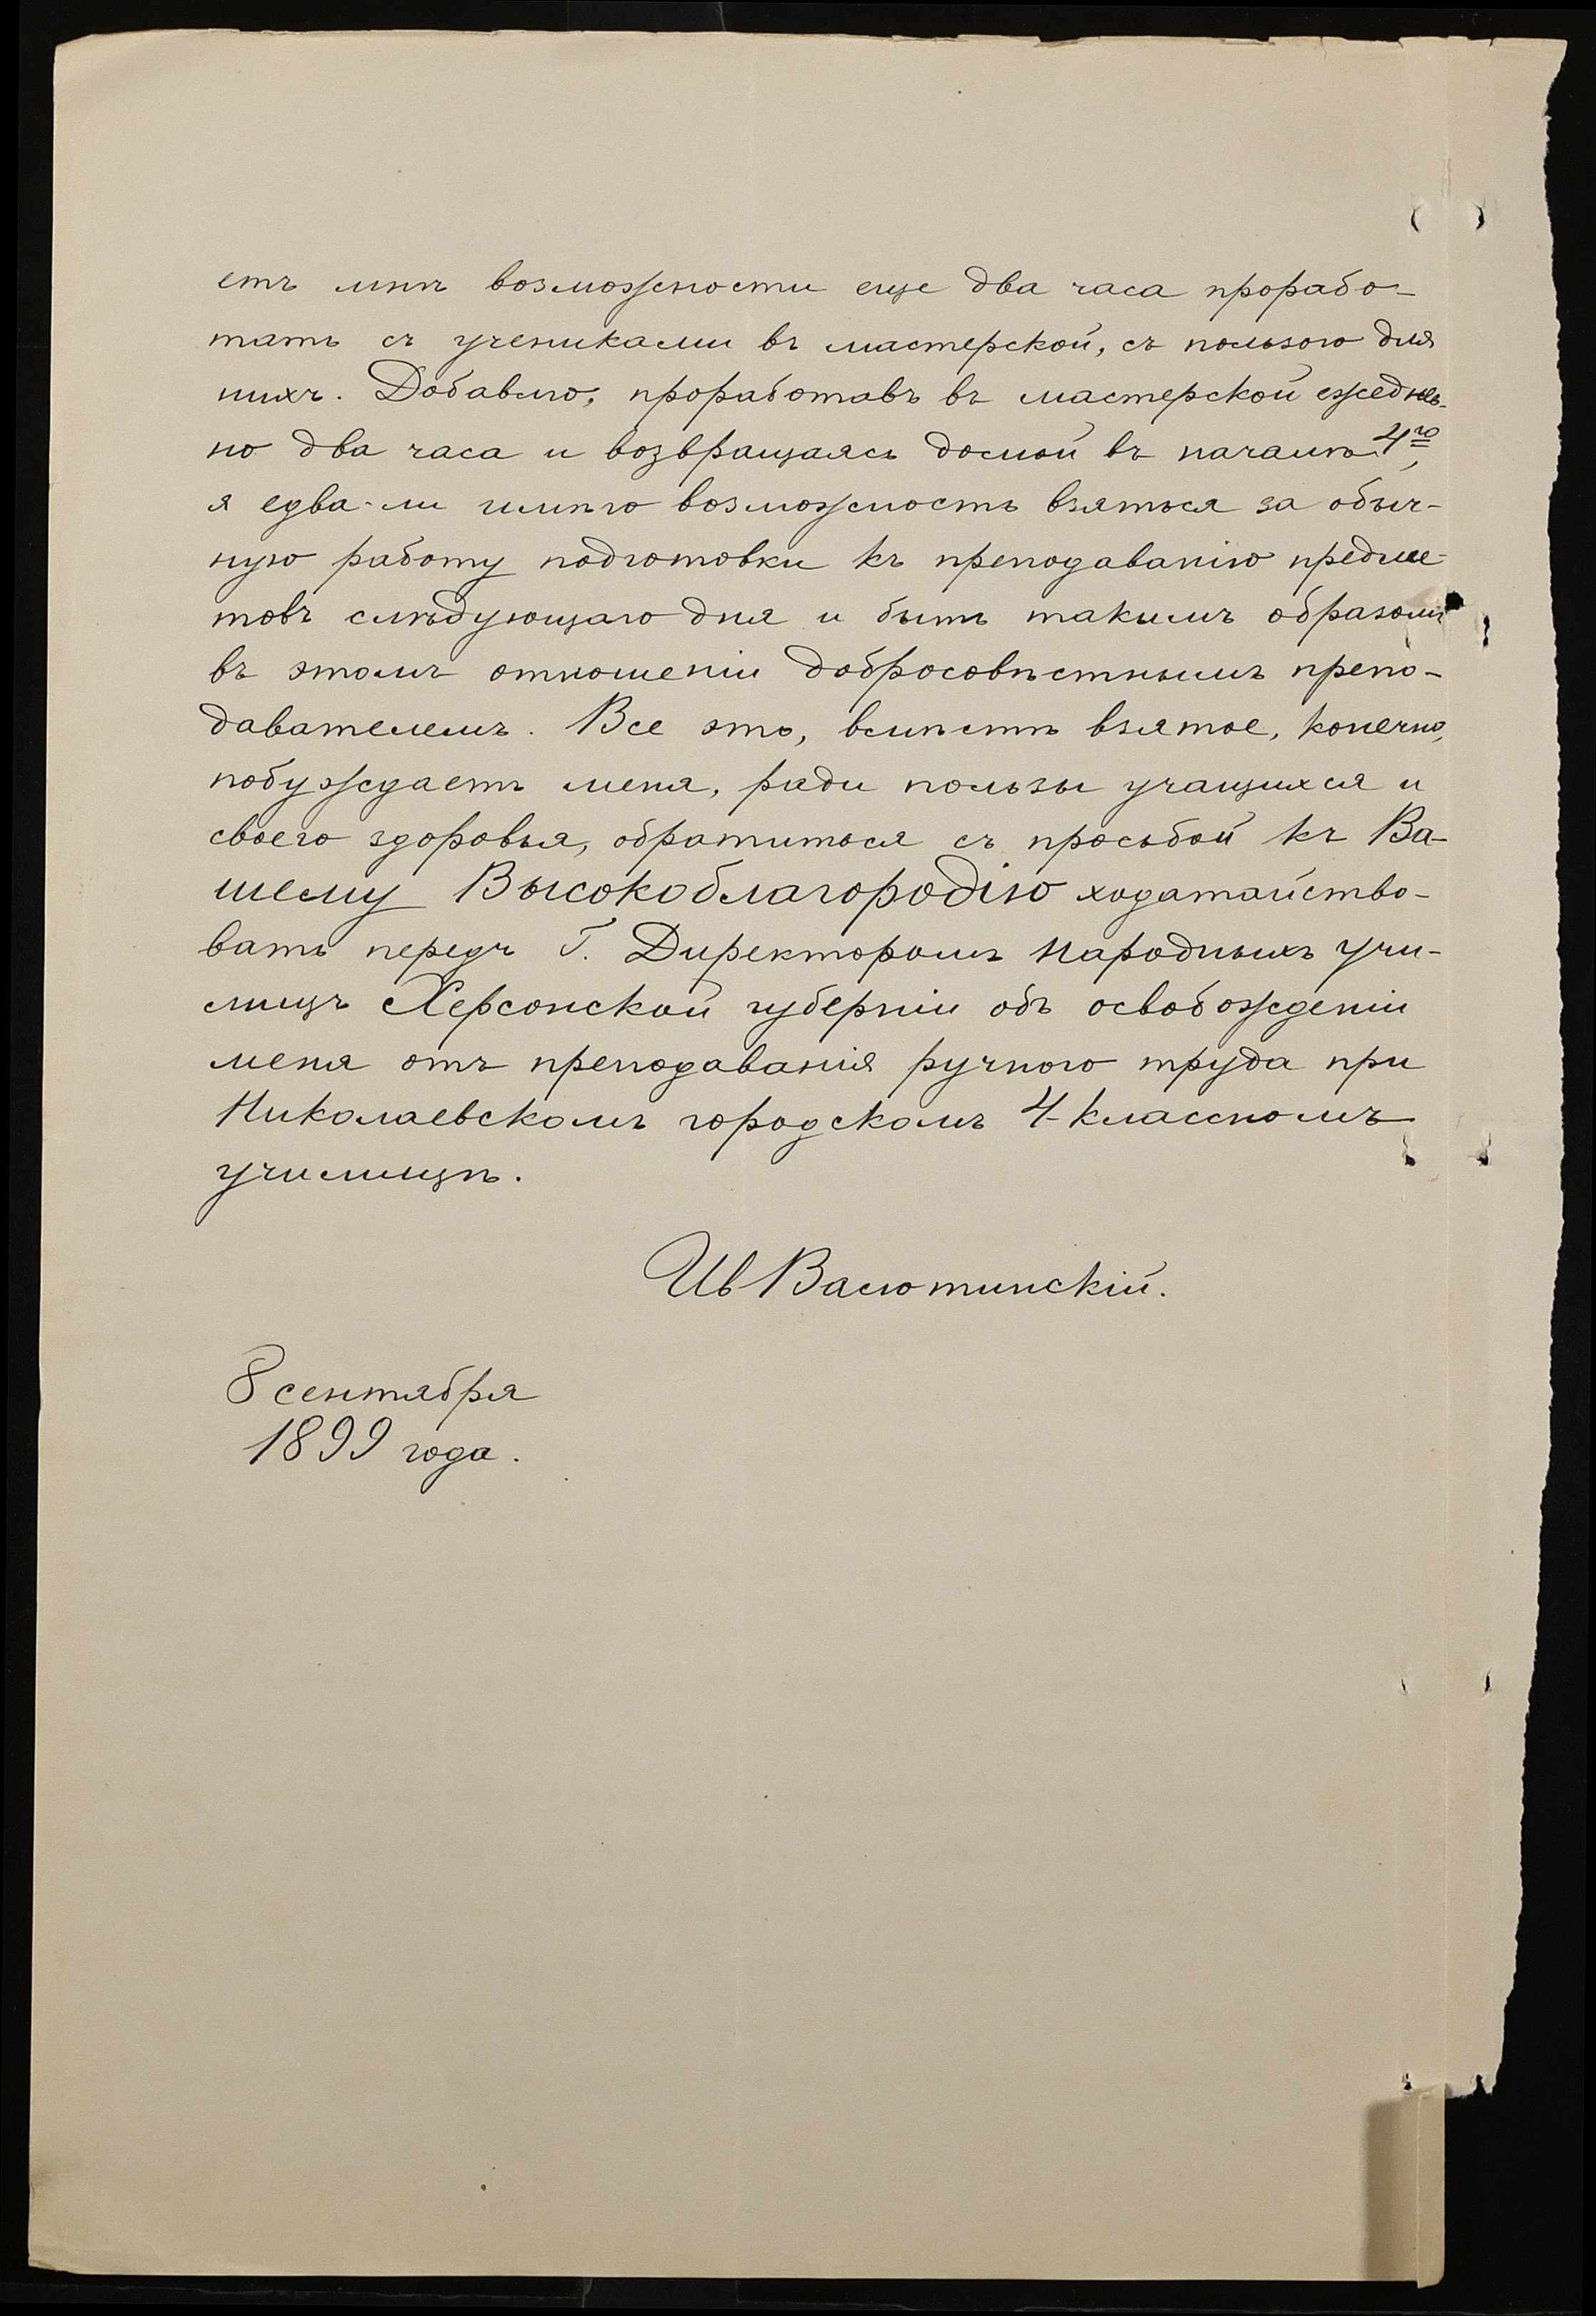 етъ мнѣ возможности еще два часа прорабо-
тать съ учениками въ мастерской, съ пользою для
нихъ. Добавлю, проработавъ въ мастерской ежеднев-
но два часа и возвращаясь домой въ началѣ 4го,
я едва-ли имѣю возможность взяться за обыч-
ную работу подготовки къ преподаванію предме-
товъ слѣдующаго дня и быть такимъ образомъ
въ этомъ отношеніи добросовѣстнымъ препо-
давателемъ. Все это, вмѣстѣ взятое, конечно,
побуждаетъ меня, ради пользы учащихся и
своего здоровья, обратиться съ просьбой къ Ва-
шему Высокоблагородію ходатайство-
вать передъ Г. Директоромъ Народныхъ учи-
лищъ Херсонской губерніи объ освобожденіи
меня отъ преподаванія ручного труда при
Николаевскомъ городскомъ 4-классномъ
училищѣ.
Ив Васютинскій.
8 сентября
1899 года.